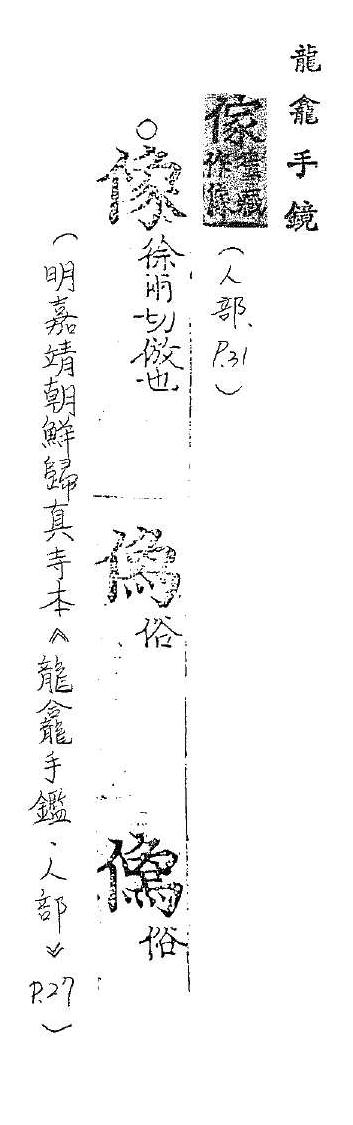 龍龕手鏡
傢 舊藏作像
（人部、P.31）
○像 徐兩切倣也
俗
俗
（明嘉靖朝鮮歸真寺本《龍龕手鑑·人部》P.27）